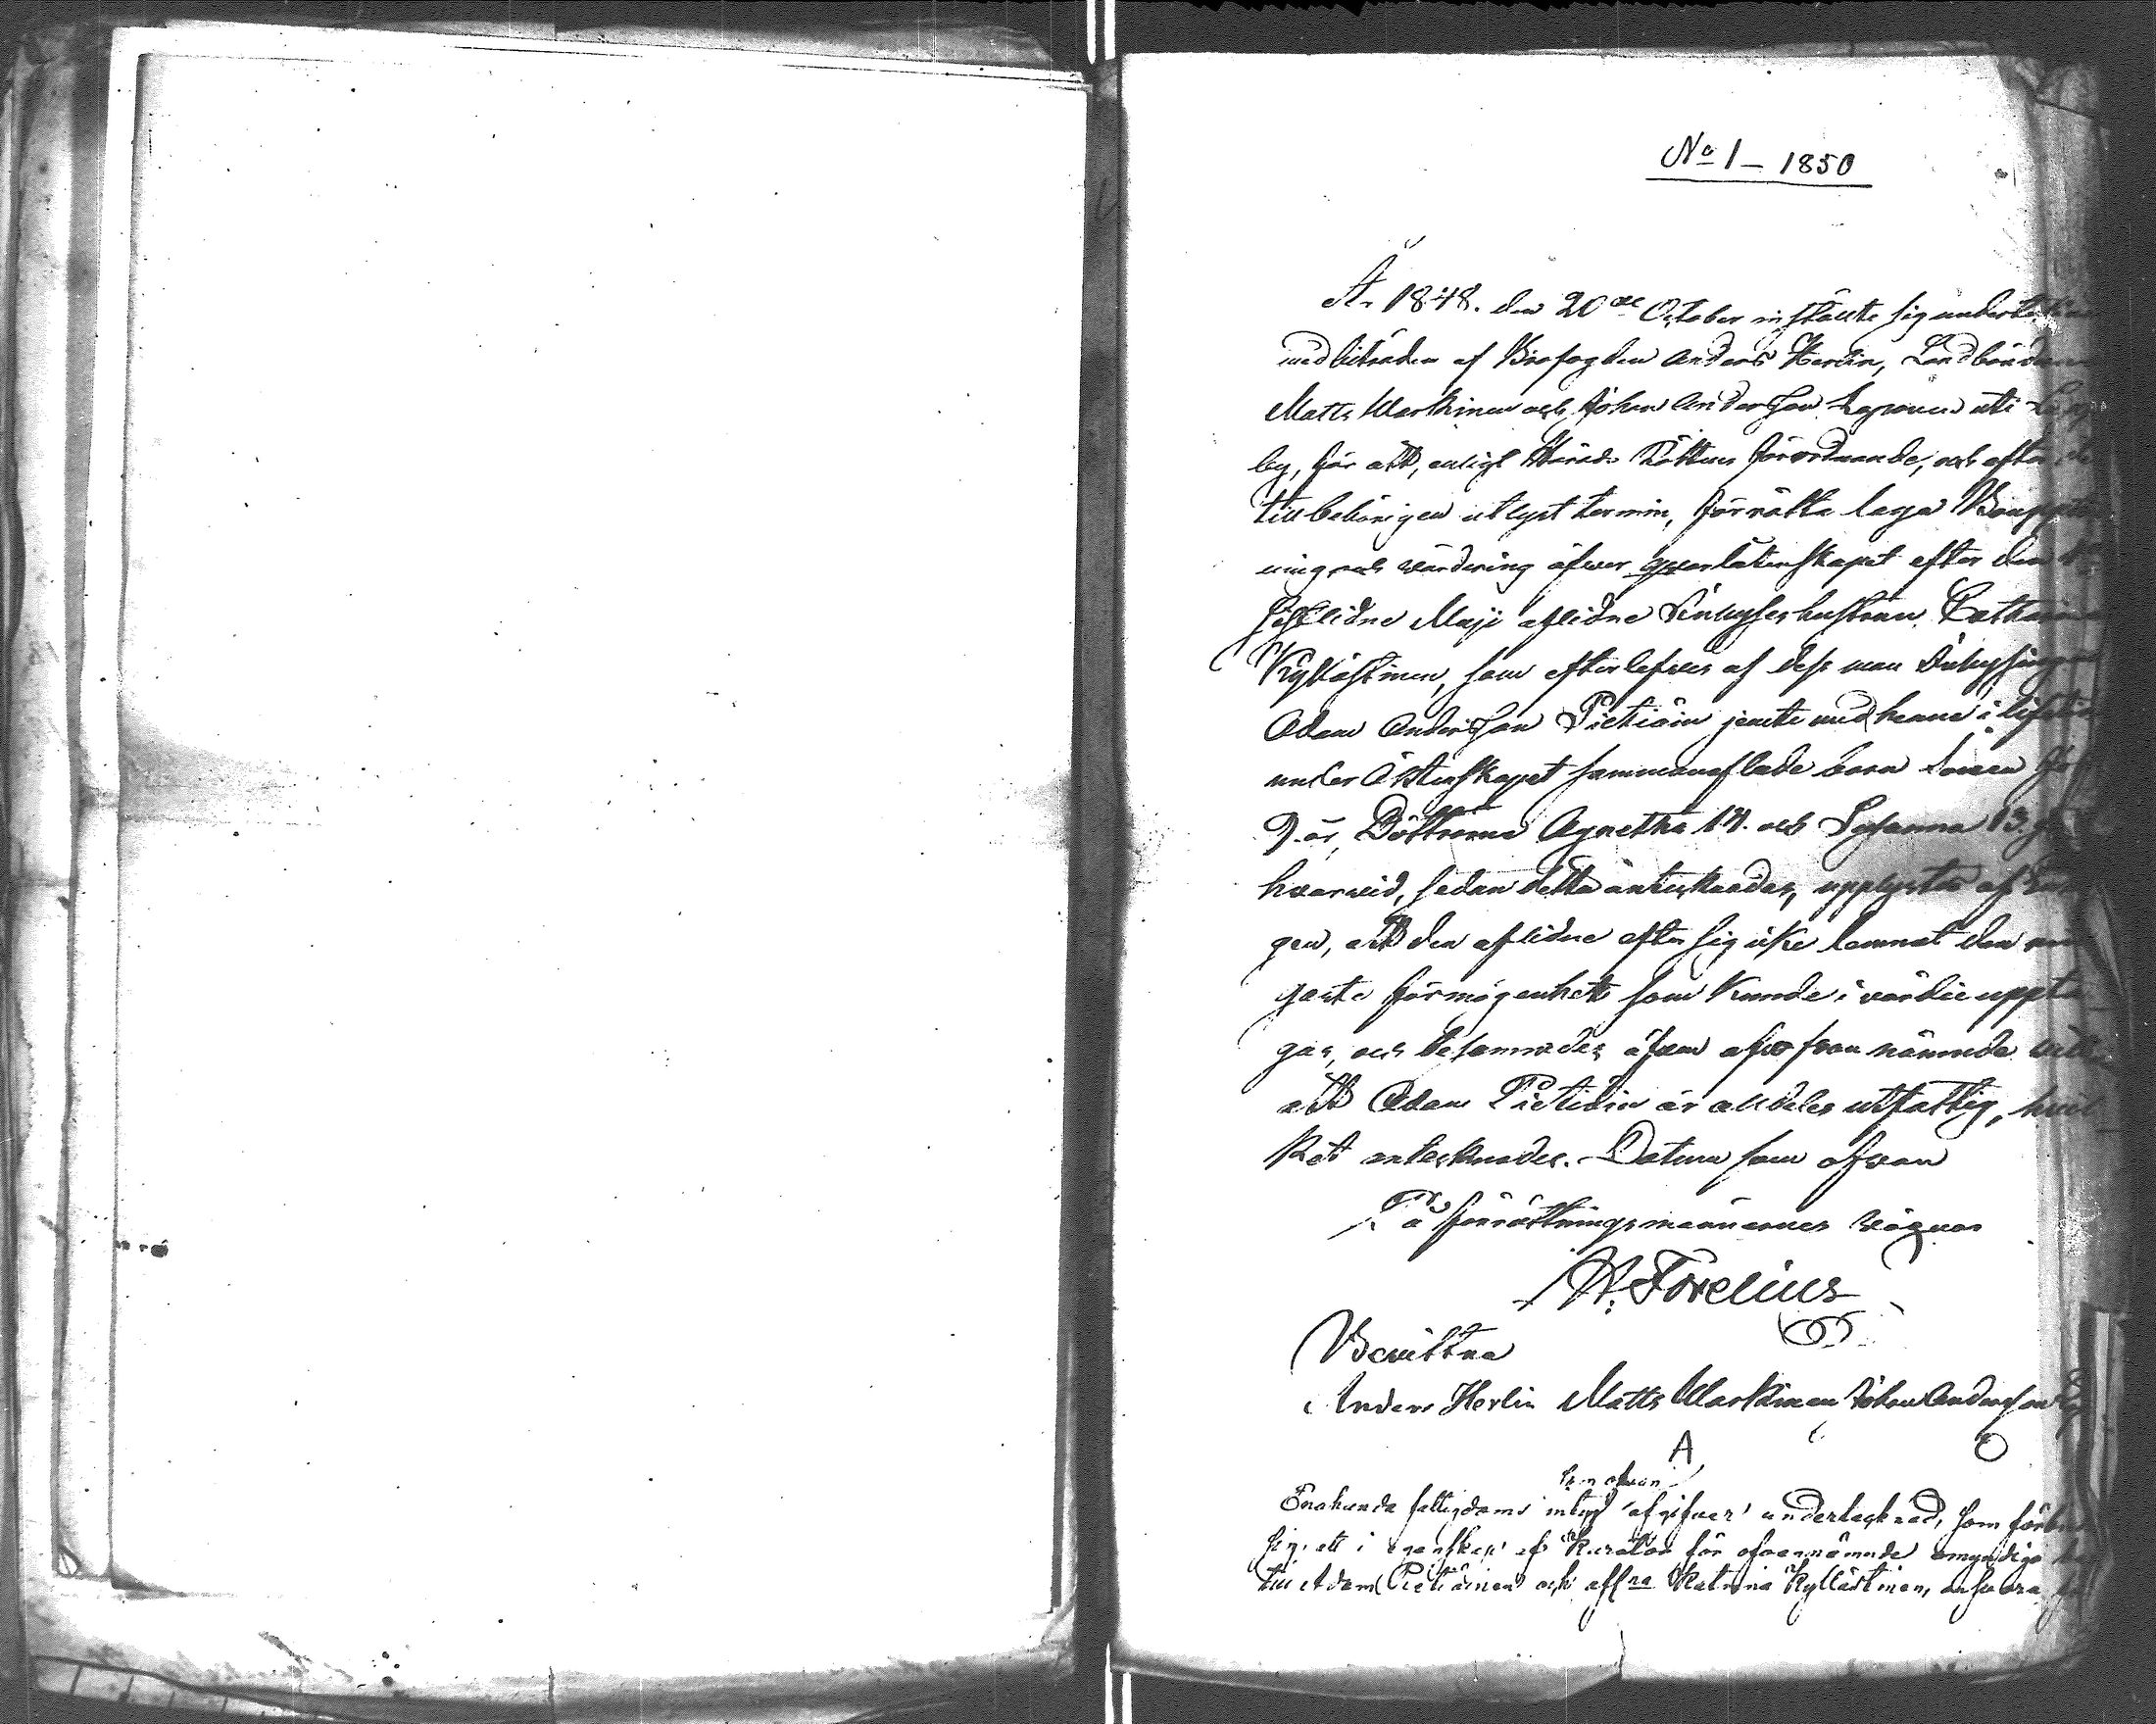 No 1 – 1850
År 1848. den 20de October inställte sig
med biträden af Brofogden Anders Herlin,
Matts Markinen och Johan Andersson uti
by, för att, enligt Härads Rättens förordnande, och efter
till behörigen utlyst termin, förrätta laga
ning och värdering öfwer qvarlåtenskapet efter den
sistlidne Maji aflidne Inhyses hustrun
Kyllästinen, som efterlefves af dess man
Adam Andersson Pietiäin jemte med henne i
under Äktenskapet sammanaflade barn Sonen
9. år, Döttrarna Agnetha 17. och Susanna 13.
hvarvid, sedan detta antecknades, upplystes af
gen, att den aflidne efter sig icke lemnat den
gaste förmögenhet som kunde i värde uppta
gas, och äfven af ofvan nämnde
att Adam Pietiäin är alldeles utfattig, hvil
ket antecknades. Datum som ofvan
På förrättningsmännernes vägnar
Forelius
Bevittna
Anders Herlin Matts Markinen Johan Andersson
A
som ofvan
Enahanda fattigdoms intyg afgifver undertecknad, som
sig, att i egenskap af Kurator för ofvannämnde omyndiga
till Adam Pietiäinen och afl:na Katrina Kyllästinen, ansvara